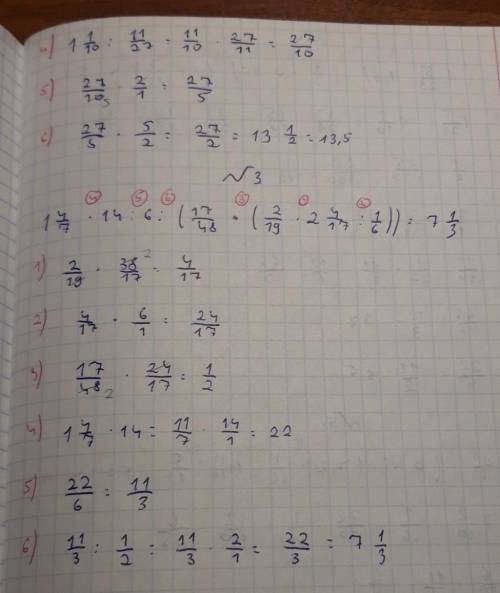 4) 1 1/10 : 11/27 = 11/10 · 27/11 = 27/10
5) 27/10 5 · 2/1 = 27/5
6) 27/5 · 5/2 = 27/2 = 13 1/2 = 13,5
№3
4 5 6 3 1 2
1 4/7 · 14 : 6 : (17/48 · (2/19 · 2 4/17 : 1/6)) = 7 1/3
1) 2/19 · 38/17 2 = 4/17
2) 4/17 · 6/1 = 24/17
3) 17/48 2 · 24/17 = 1/2
4) 1 4/7 · 14 = 11/7 · 14/1 = 22
5) 22/6 = 11/3
6) 11/3 : 1/2 = 11/3 · 2/1 = 22/3 = 7 1/3